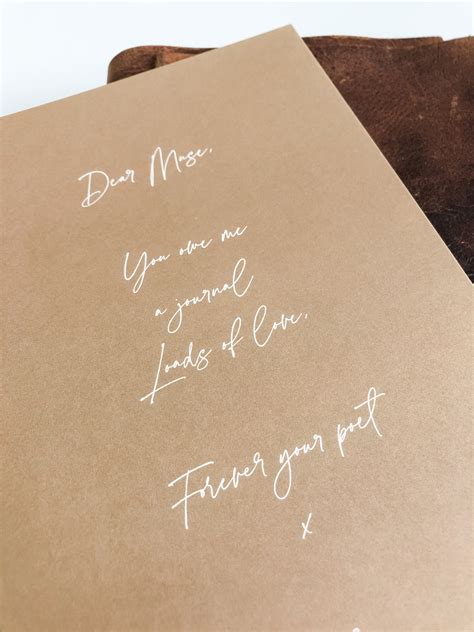 Dear Muse,
You owe me
a journal
Loads of love,
Forever your poet
x